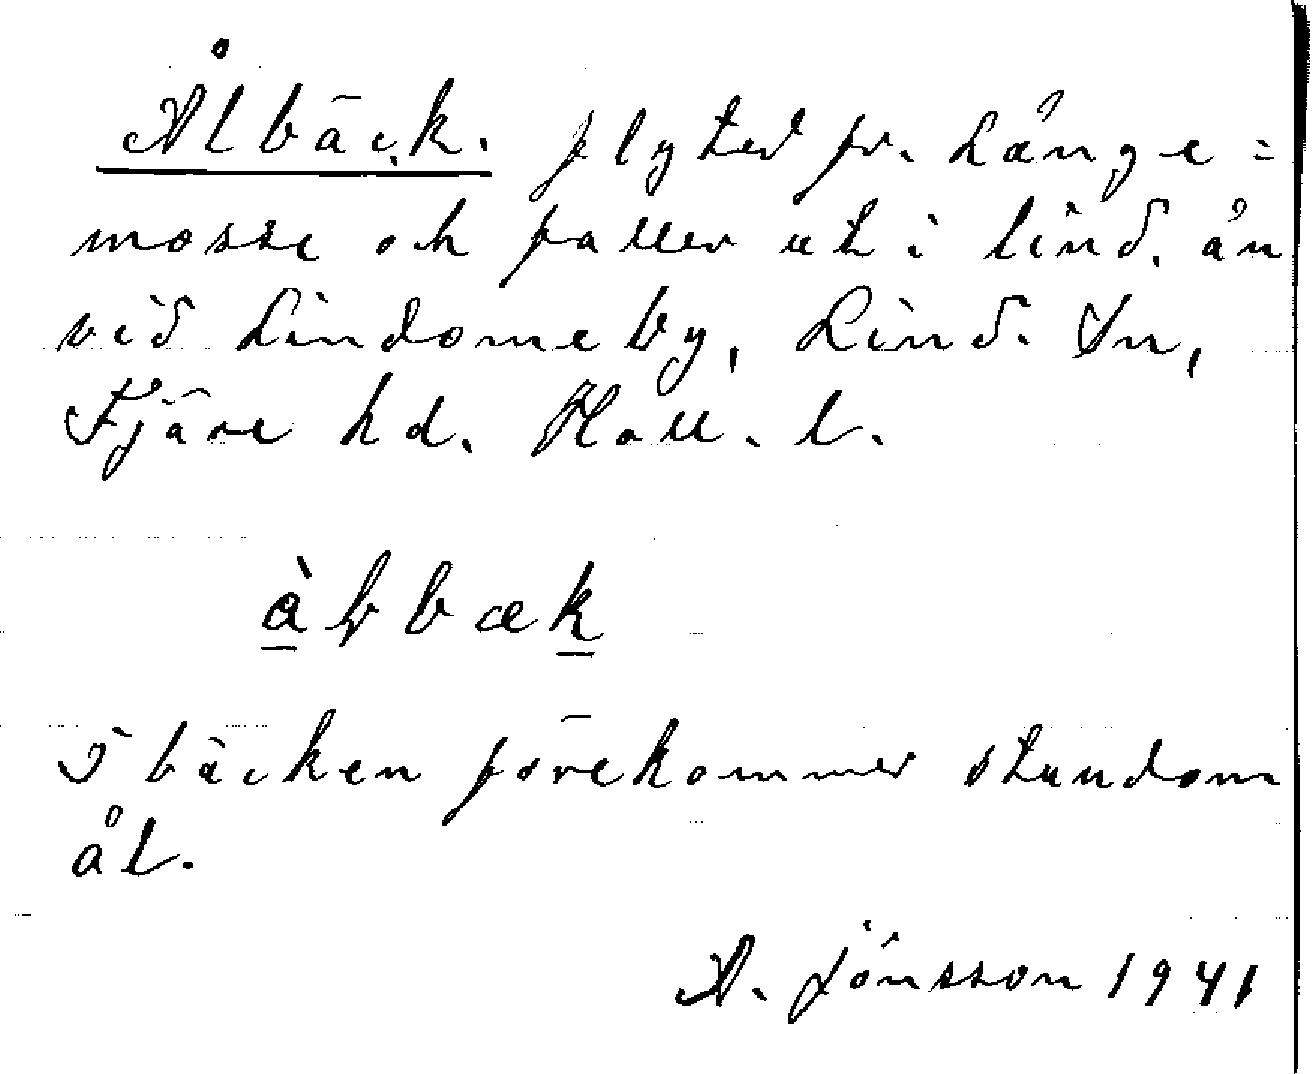 Ålbäck. flyter fr. Långe=
mosse och faller ut i Lind. ån
vid Lindome by, Lind. Sn,
Fjäre hd. Hall. l.
I bäcken förekommer stundom
ål.
A. Jönsson 1941